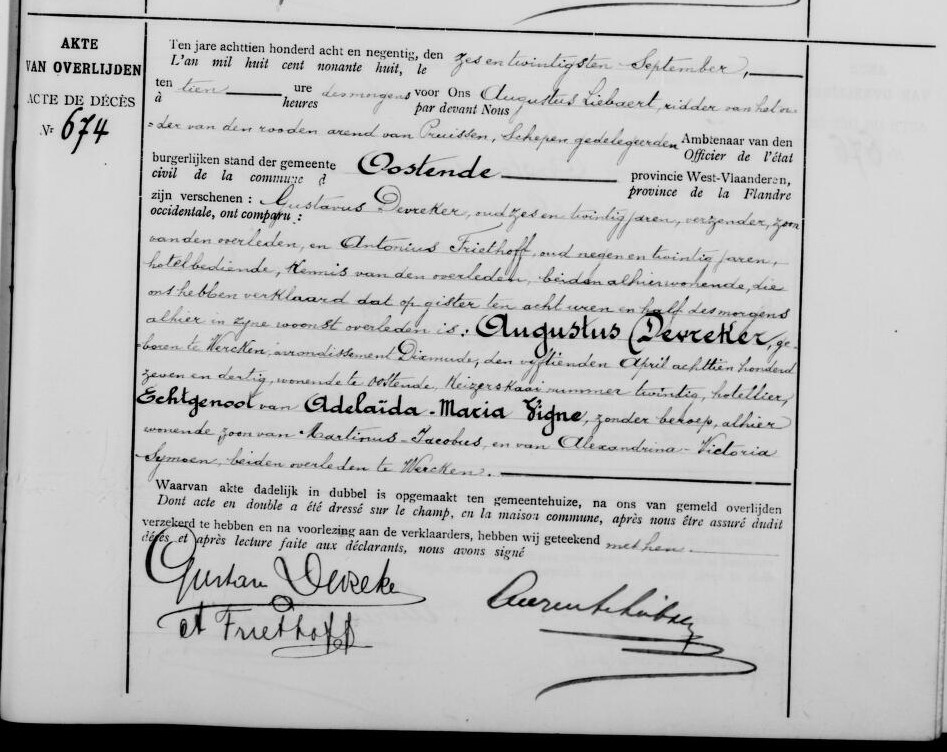 AKTE
VAN OVERLIJDEN
ACTE DE DÉCÈS
Nr 674
Ten jare achttien honderd acht en negentig, den zes en twintigsten September,
L'an mil huit cent nonante huit, le
ten tien ure des morgens voor Ons Augustus Liebaert, ridder van het or-
à heures par devant Nous
=der van den rooden arend van Pruissen, Schepen gedelegeerden Ambtenaar van den
Officier de l'état
burgerlijken stand der gemeente Oostende provincie West-Vlaanderen,
civil de la commune d province de la Flandre
zijn verschenen : Gustavus Devreker, oud zes en twintig jaren, verzender, zoon
occidentale, ont comparu :
van den overleden, en Antonius Friethoff, oud negen en twintig jaren,
hotelbediende, kennis van den overleden, beiden alhier wonende, die
ons hebben verklaard dat op gister ten acht uren en half des morgens
alhier in zyne woonst overleden is : Augustus Devreker, ge-
=boren te Wercken, arrondissement Dixmude, den vyftienden April achttien honderd
zeven en dertig, wonende te Oostende, Keizerskaai nummer twintig, hotellier,
Echtgenoot van Adelaïda-Maria Vigne, zonder beroep, alhier
wonende, zoon van Martinus-Jacobus, en van Alexandrina-Victoria
Symoen, beiden overleden te Wercken.
Waarvan akte dadelijk in dubbel is opgemaakt ten gemeentehuize, na ons van gemeld overlijden
Dont acte en double a été dressé sur le champ, en la maison commune, après nous être assuré dudit
verzekerd te hebben en na voorlezing aan de verklaarders, hebben wij geteekend met hen
décès et après lecture faite aux déclarants, nous avons signé
Gustave Devreke
A Friethoff